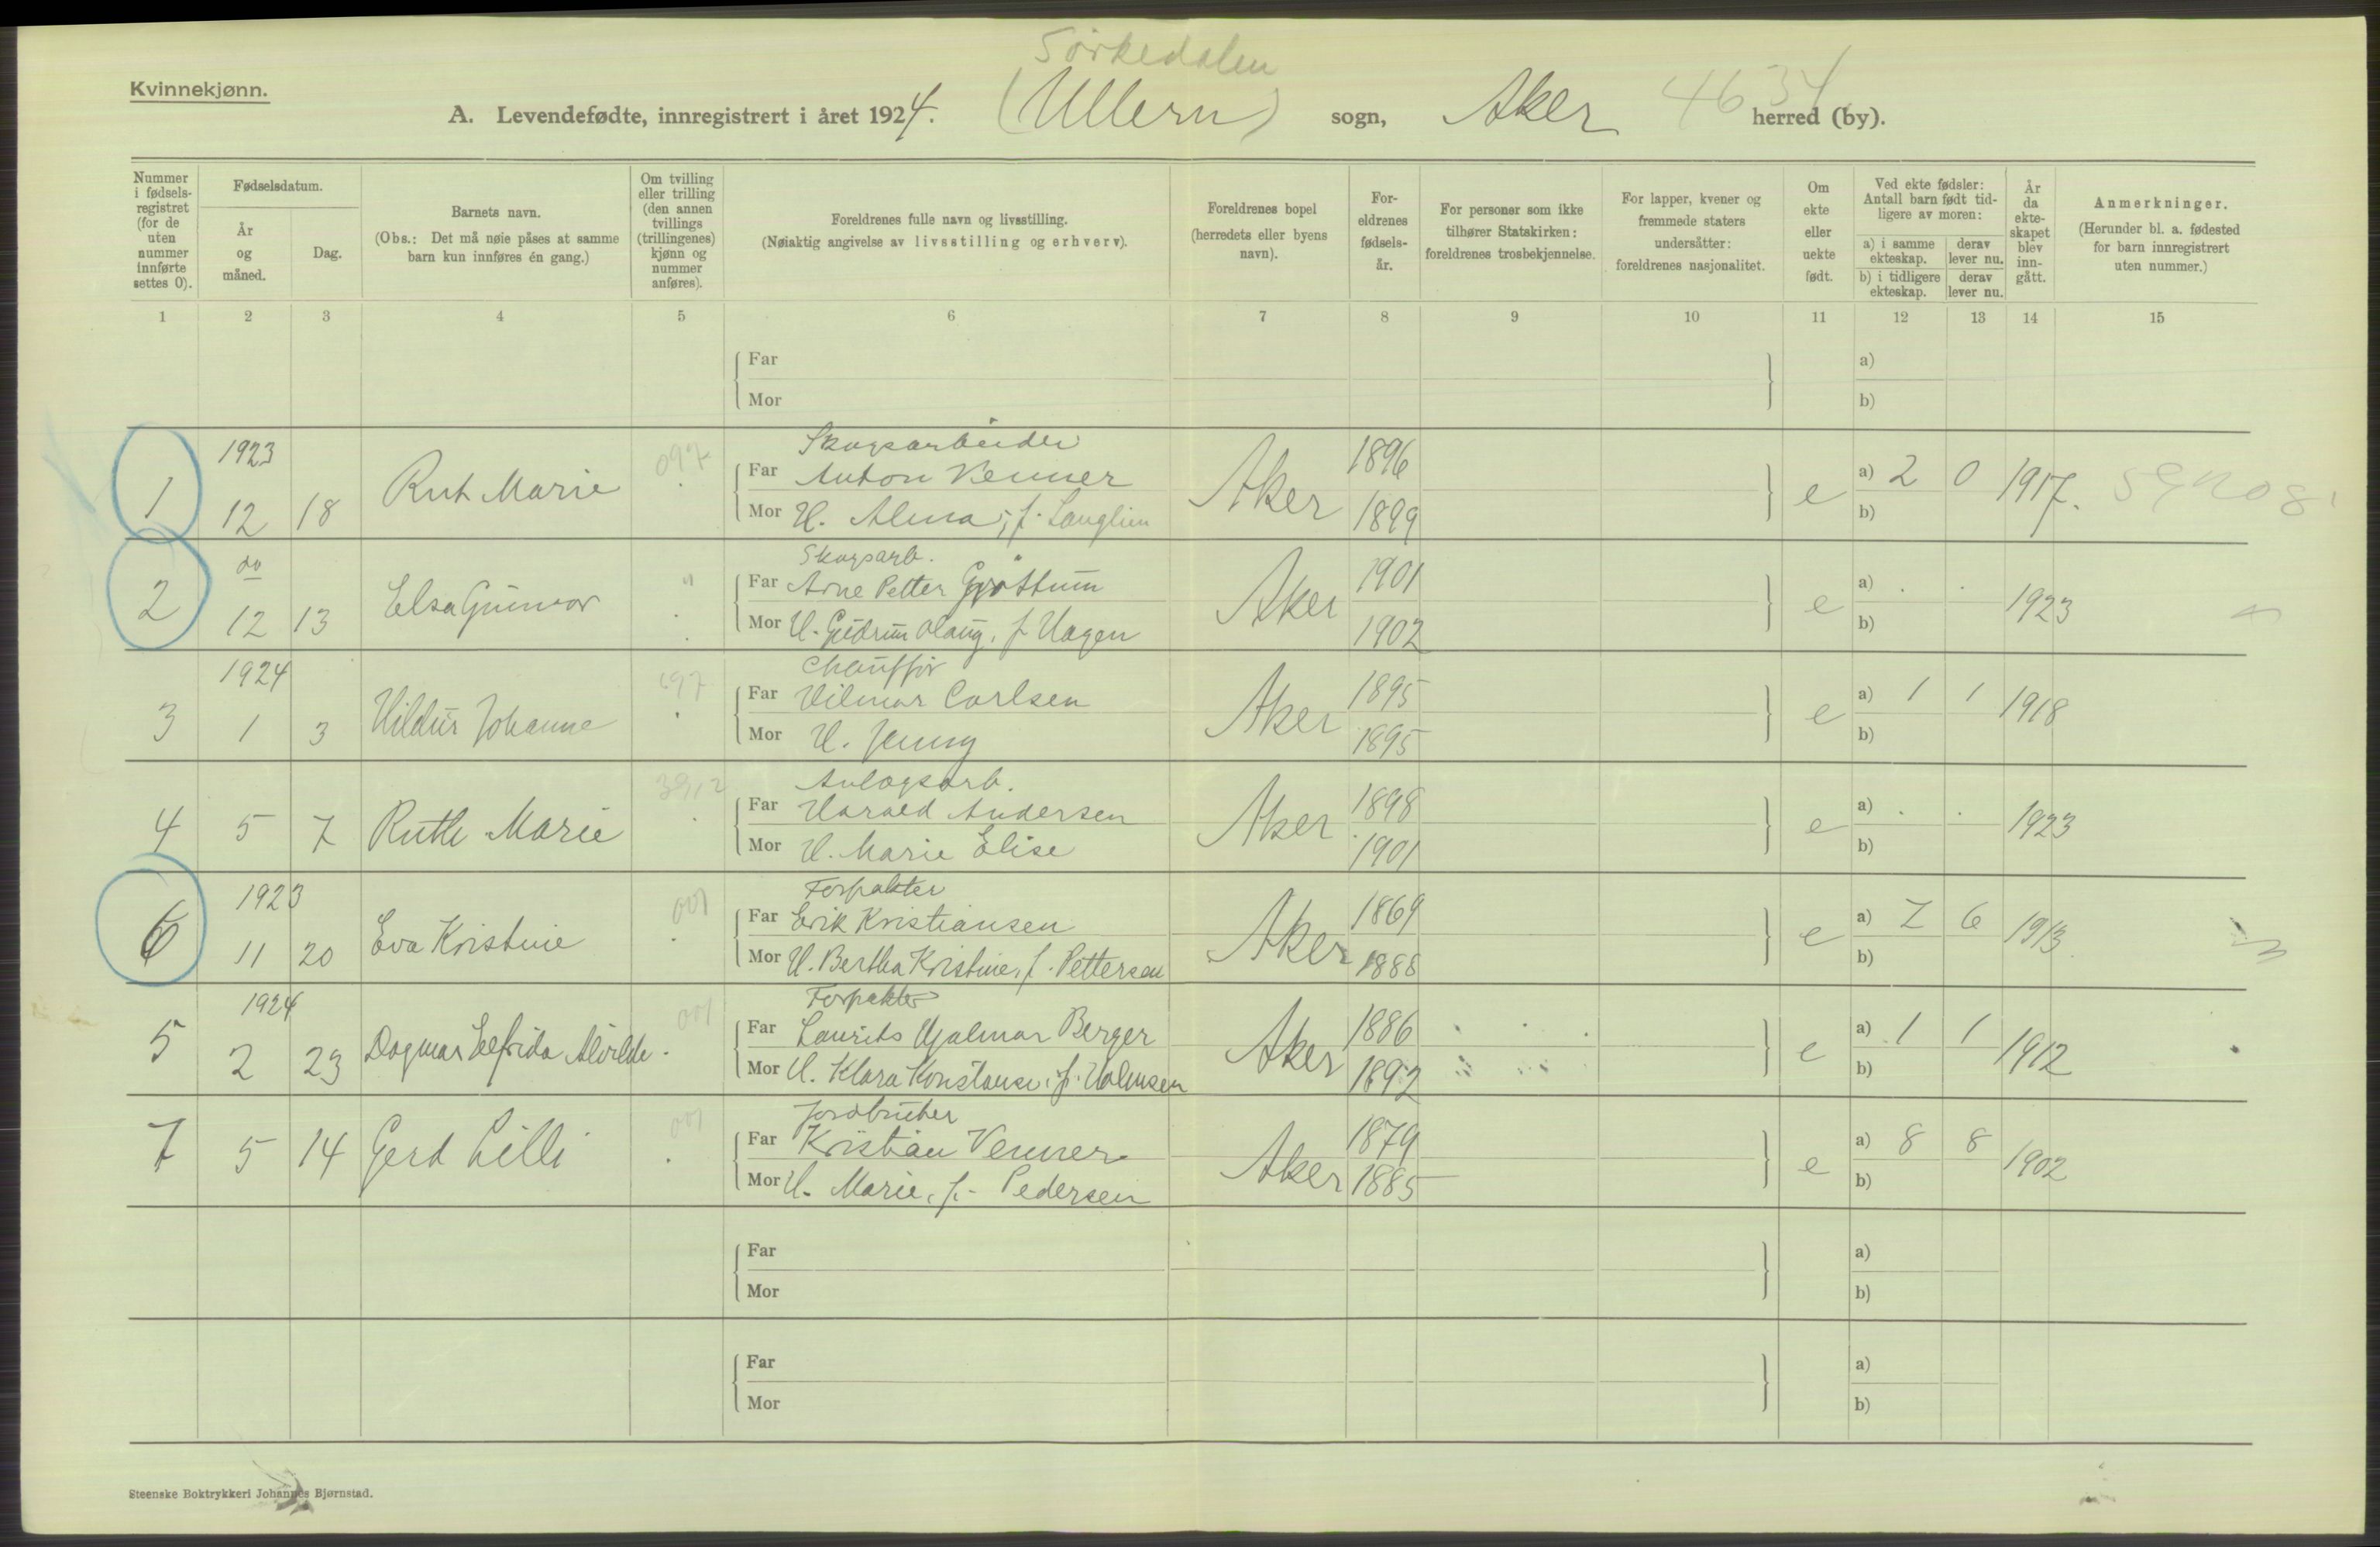 Sörkedalen
Kvinnekjønn.
A. Levendefødte, innregistrert i året 1924. (Ullern) sogn, Aker 4634 herred (by).
Nummer i fødsels-registret (for de uten nummer innførte settes 0).
Fødselsdatum.
År og måned.
Dag.
Barnets navn.
(Obs.: Det må nøie påses at samme barn kun innføres én gang.)
Om tvilling eller trilling (den annen tvillings (trillingenes) kjønn og nummer anføres).
Foreldrenes fulle navn og livsstilling.
(Nøiaktig angivelse av livsstilling og erhverv).
Foreldrenes bopel (herredets eller byens navn).
For-eldrenes fødsels-år.
For personer som ikke tilhører Statskirken: foreldrenes trosbekjennelse.
For lapper, kvener og fremmede staters undersåtter: foreldrenes nasjonalitet.
Om ekte eller uekte født.
Ved ekte fødsler: Antall barn født tid-ligere av moren:
a) i samme ekteskap. derav lever nu.
b) i tidligere ekteskap. derav lever nu.
År da ekte-skapet blev inn-gått.
Anmerkninger.
(Herunder bl. a. fødested for barn innregistrert uten nummer.)
1 2 3 4 5 6 7 8 9 10 11 12 13 14 15
Far a)
Mor b)
1923 Skogsarbeider
1 12 18 Rut Marie 097 Far Anton Venner Aker 1896 e a) 2 0 1917.
Mor H. Alma, f. Langlien 1899 b)
do Skogsarb.
2 12 13 Elsa Gunvor " Far Arne Petter Grøttum Aker 1901 e a) . . 1923
Mor H. Gudrun Olaug, f. Hagen 1902 b)
1924 Chauffør
3 1 3 Hildur Johanne 697 Far Hilmar Carlsen Aker 1895 e a) 1 1 1918
Mor H. Jenny 1895 b)
Anlogsarb.
4 5 7 Ruth Marie Far Harald Andersen Aker 1898 e a) . . 1923
Mor H. Marie Elise 1901 b)
1923 Forpakter
6 11 20 Eva Kristine 001 Far Erik Kristiansen Aker 1869 e a) 7 6 1913
Mor H. Bertha Kristine, f. Pettersen 1888 b)
1924 Forpakter
5 2 23 Dagmar Elfrida Alvilde 001 Far Laurits Hjalmar Berger Aker 1886 e a) 1 1 1912
Mor H. Klara Konstanse, f. Holmsen 1892 b)
Jordbruker
7 5 14 Gerd Lilli 001 Far Kristian Venner Aker 1879 e a) 8 8 1902
Mor H. Marie, f. Pedersen 1885 b)
Far a)
Mor b)
Far a)
Mor b)
Steenske Boktrykkeri Johannes Bjørnstad.